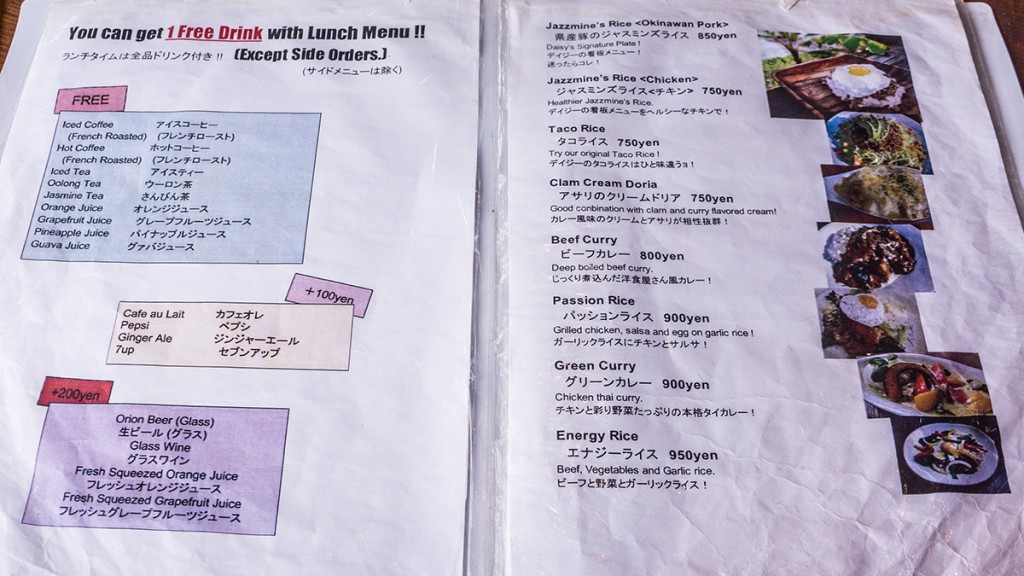 You can get 1 Free Drink with Lunch Menu !!
ランチタイムは全品ドリンク付き !! (Except Side Orders.)
(サイドメニューは除く)
FREE
Iced Coffee アイスコーヒー
(French Roasted) (フレンチロースト)
Hot Coffee ホットコーヒー
(French Roasted) (フレンチロースト)
Iced Tea アイスティー
Oolong Tea ウーロン茶
Jasmine Tea さんぴん茶
Orange Juice オレンジジュース
Grapefruit Juice グレープフルーツジュース
Pineapple Juice パイナップルジュース
Guava Juice グァバジュース
+100yen
Cafe au Lait カフェオレ
Pepsi ペプシ
Ginger Ale ジンジャーエール
7up セブンアップ
+200yen
Orion Beer (Glass)
生ビール (グラス)
Glass Wine
グラスワイン
Fresh Squeezed Orange Juice
フレッシュオレンジジュース
Fresh Squeezed Grapefruit Juice
フレッシュグレープフルーツジュース
Jazzmine's Rice <Okinawan Pork>
県産豚のジャスミンズライス 850yen
Daisy's Signature Plate !
デイジーの看板メニュー！
迷ったらコレ！
Jazzmine's Rice <Chicken>
ジャスミンズライス<チキン> 750yen
Healthier Jazzmine's Rice.
デイジーの看板メニューをヘルシーなチキンで！
Taco Rice
タコライス 750yen
Try our original Taco Rice !
デイジーのタコライスはひと味違うョ！
Clam Cream Doria
アサリのクリームドリア 750yen
Good conbination with clam and curry flavored cream!
カレー風味のクリームとアサリが相性抜群！
Beef Curry
ビーフカレー 800yen
Deep boiled beef curry.
じっくり煮込んだ洋食屋さん風カレー！
Passion Rice
パッションライス 900yen
Grilled chicken, salsa and egg on garlic rice !
ガーリックライスにチキンとサルサ！
Green Curry
グリーンカレー 900yen
Chicken thai curry.
チキンと彩り野菜たっぷりの本格タイカレー！
Energy Rice
エナジーライス 950yen
Beef, Vegetables and Garlic rice.
ビーフと野菜とガーリックライス！